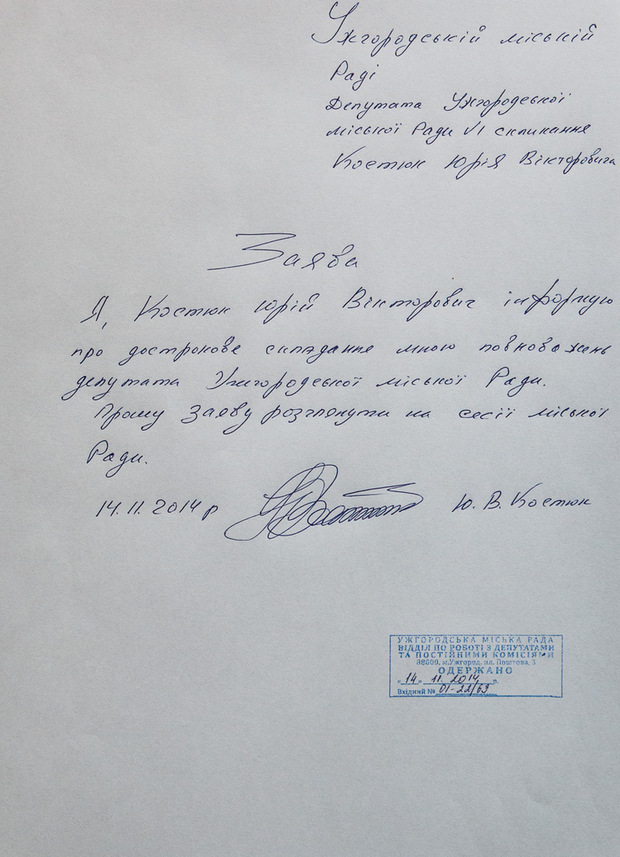 Ужгородській міській
Раді
Депутата Ужгородської
міської Ради VI скликання
Костюк Юрія Вікторовича
Заява
Я, Костюк Юрій Вікторович інформую
про дострокове складання мною повноважень
депутата Ужгородської міської Ради.
Прошу Заяву розглянути на сесії міської
Ради.
14.11.2014 р Ю. В. Костюк
УЖГОРОДСЬКА МІСЬКА РАДА
ВІДДІЛ ПО РОБОТІ З ДЕПУТАТАМИ
ТА ПОСТІЙНИМИ КОМІСІЯМИ
88000, м.Ужгород, пл. Поштова, 3
ОДЕРЖАНО
„14„ 11. 2014
Вхідний № 01-22/63